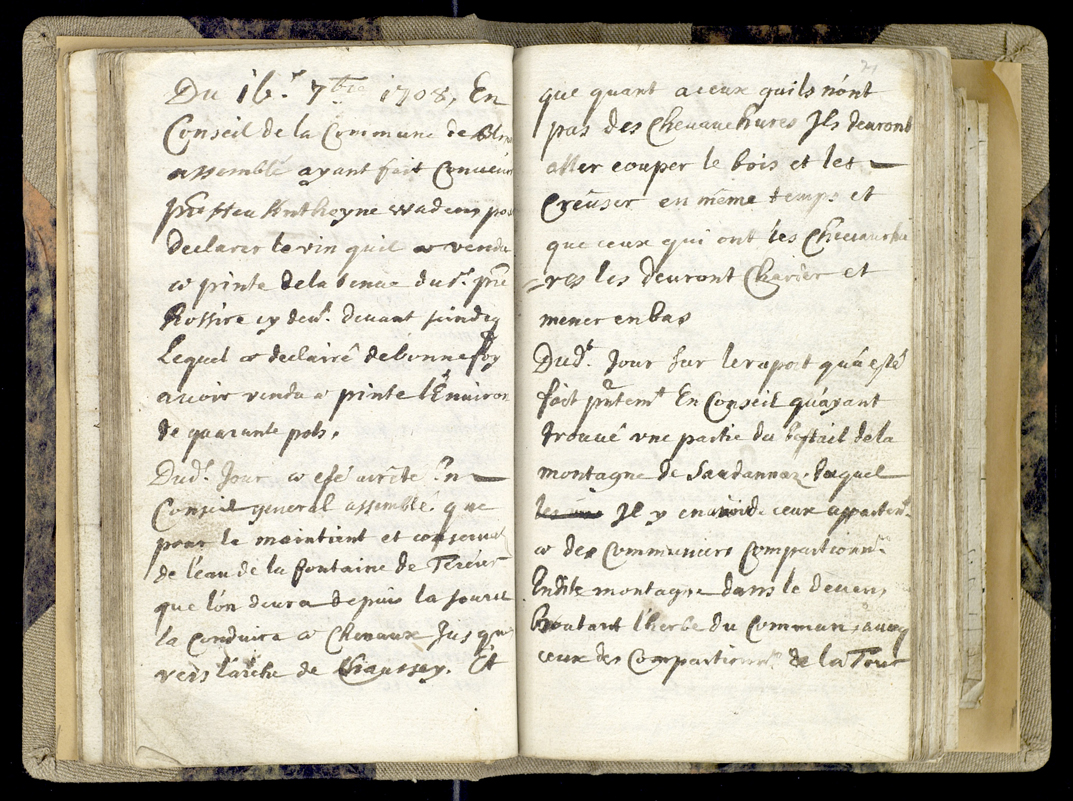 Du 16.e 7bre 1708, En
Conseil de la Commune de
assemblé ayant fait Conuenir
Antheyne Wadens pour
declarer le vin quil a vendu
a pinte de la venue dud.t
Rossire cy deu.t deuant scindiq
Lequel a declairé de bonne foy
auoir vendu a pinte l'Enuiron
de quarante pots.
Dud.t Jour a esté arrêté En
Conseil general assemblé. que
pour le maintient et conserua
de l'eau de la fontaine de
que l'ôn deura depuis la source
la Conduire a Chenaux Jus que
vers l'arche de Chaussey. Et
21
que quant a ceux quils n'ont
pas des Cheuauchures Jls deuront
aller couper le bois et les
Creuser en même temps et
que ceux qui ont les Cheuauchu
=res les deuront Charier et
mener en bas
Dud.t Jour sur le raport qu'a esté
fait pñtem.t En Conseil qu'ayant
trouué vne partie du bestail de la
montagne de Saudannaz. duquel
Jl y en auoit de ceux apparten.t
a des Communiers Compartionn.rs
En dite montagne dans le deuens
broutant l'herbe du Commun, auec
ceux des Compartionn.rs de la Tour